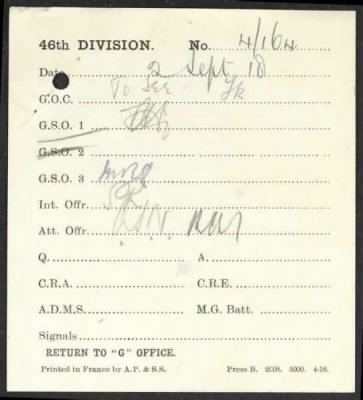 46th DIVISION. No. 4/164
Date 2 Sept 18
G.O.C. To see
G.S.O. 1
G.S.O. 2
G.S.O. 3
Int. Offr.
Att. Offr.
Q. A.
C.R.A. C.R.E.
A.D.M.S. M.G. Batt.
Signals
RETURN TO "G" OFFICE.
Printed in France by A.P. & S.S. Press B. 2038. 5000. 4-18.